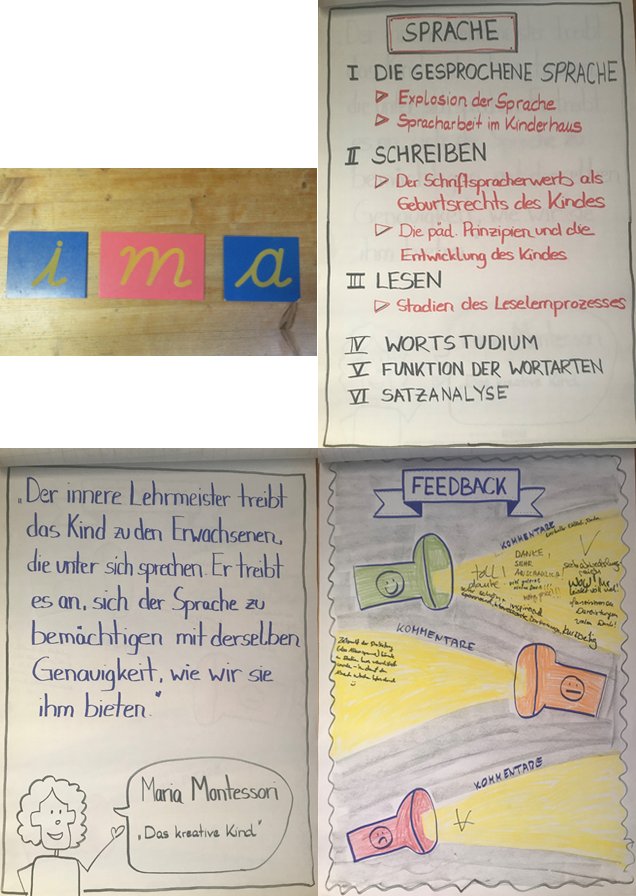 i m a
SPRACHE
I DIE GESPROCHENE SPRACHE
▷ Explosion der Sprache
▷ Spracharbeit im Kinderhaus
II SCHREIBEN
▷ Der Schriftspracherwerb als
Geburtsrechts des Kindes
▷ Die päd. Prinzipien und die
Entwicklung des Kindes
III LESEN
▷ Stadien des Leselernprozesses
IV WORTSTUDIUM
V FUNKTION DER WORTARTEN
VI SATZANALYSE
„Der innere Lehrmeister treibt
das Kind zu den Erwachsenen,
die unter sich sprechen. Er treibt
es an, sich der Sprache zu
bemächtigen mit derselben
Genauigkeit, wie wir sie
ihm bieten."
Maria Montessori
„Das kreative Kind"
FEEDBACK
KOMMENTARE
toll!
danke
DANKE,
SEHR
ANSCHAULICH!
WOW!
KOMMENTARE
KOMMENTARE